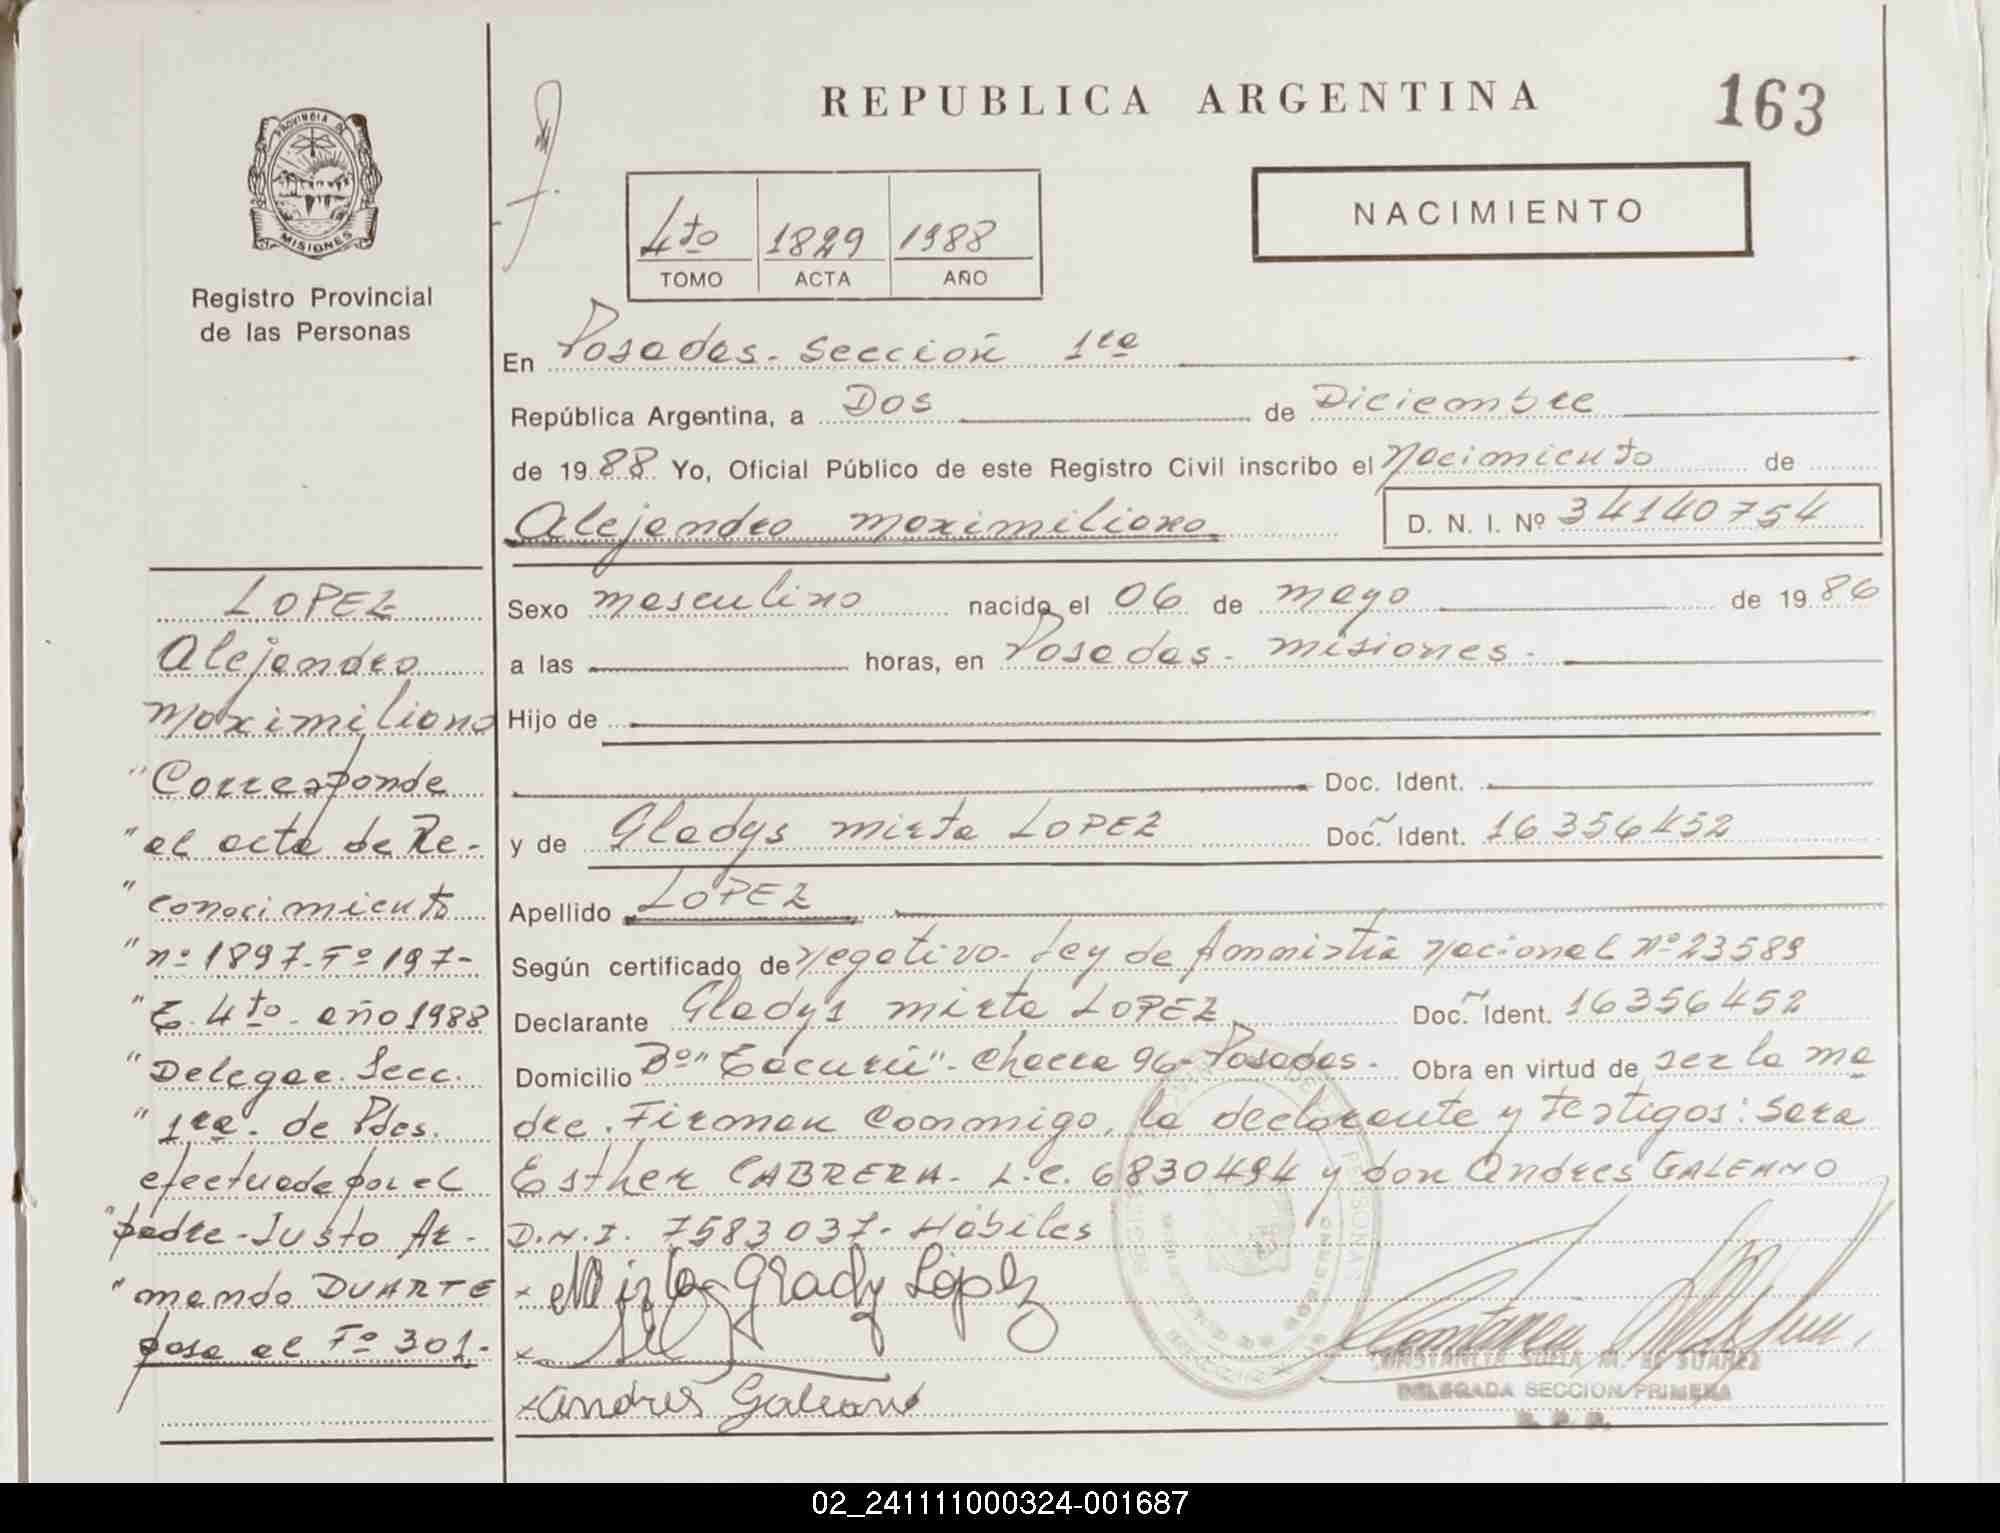 REPUBLICA ARGENTINA
163
PROVINCIA DE
MISIONES
Registro Provincial
de las Personas
4to 1829 1988
TOMO ACTA AÑO
NACIMIENTO
En Posadas. Sección 1ra
República Argentina, a Dos de Diciembre
de 1988 Yo, Oficial Público de este Registro Civil inscribo el Nacimiento de
Alejandro Maximiliano D. N. I. Nº 34140754
Sexo masculino nacido el 06 de mayo de 1986
a las horas, en Posadas. misiones.
Hijo de
Doc. Ident.
y de Gladys mirta LOPEZ Doc. Ident. 16356452
Apellido LOPEZ
Según certificado de Negativo. Ley de Amnistía Nacional Nº 23589
Declarante Gladys mirta LOPEZ Doc. Ident. 16356452
Domicilio Bº "Tacurú". Chacra 96-Posadas. Obra en virtud de ser la ma
dre. Firman Conmigo, la declarante y testigos: Sara
Esther CABRERA. L.C. 6830494 y don Andres GALEANO
D.N.I. 7583037. Hábiles
x Mirta Glady López
x
x Andres Galeano
CONSTANCIA SOFIA M. DE SUAREZ
DELEGADA SECCION PRIMERA
R. P. P.
LOPEZ
Alejandro
Maximiliano
"Corresponde
"al acta de Re-
"conocimiento
"Nº 1897. Fº 197-
"T. 4to. año 1988
"Delegac. Secc.
"1ra. de Pdas.
efectuada por el
"padre-Justo Ar-
"mando DUARTE
pasa al Fº 301.
02_241111000324-001687